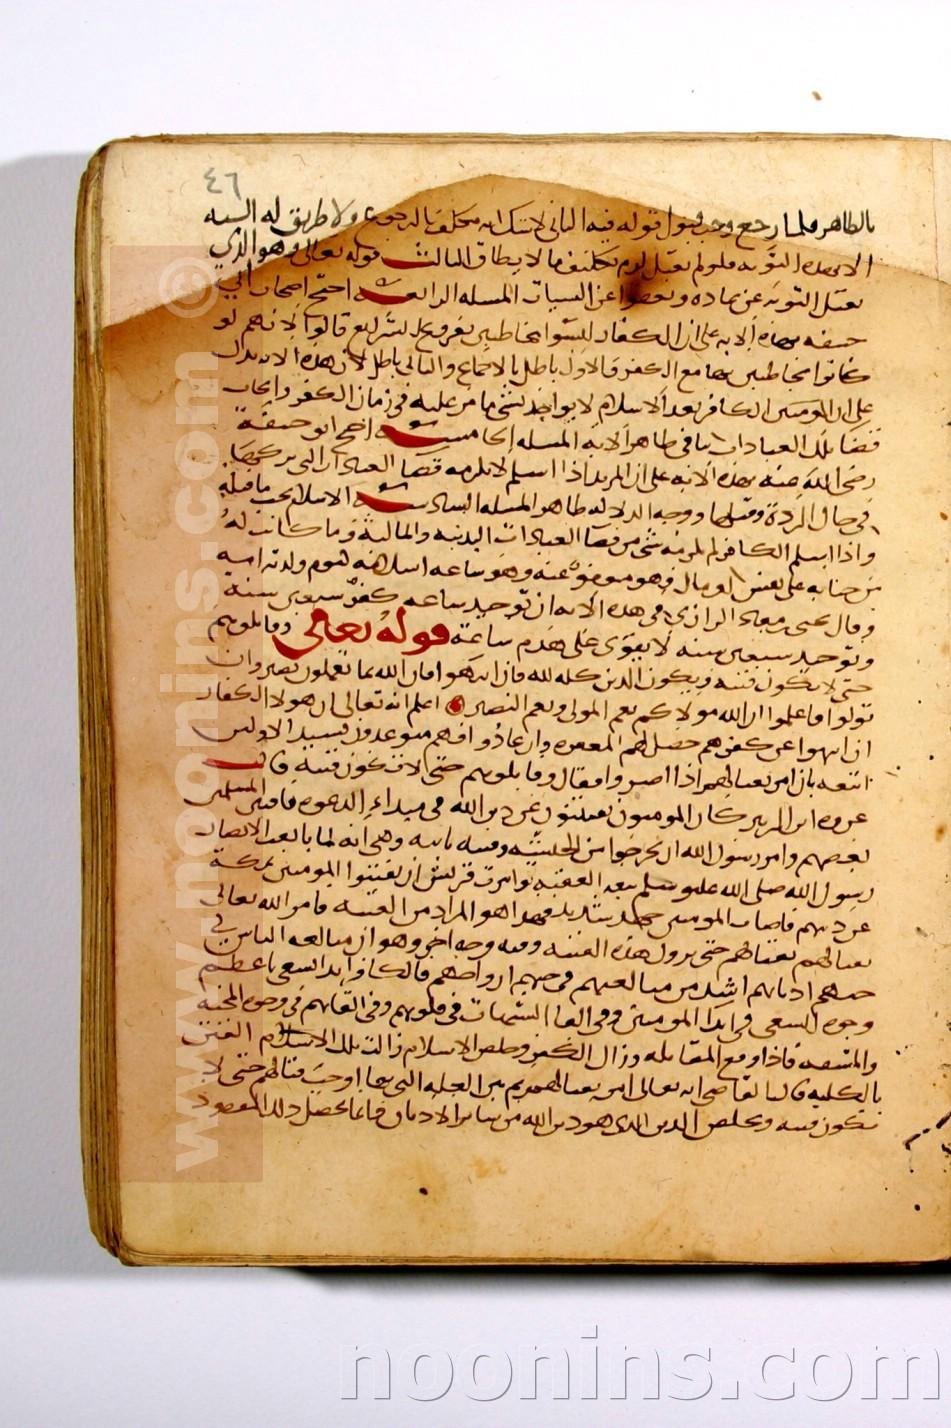 ٤٦
بالظاهر فلما رجع وجب قبول قوله فيه الثاني لا شك انه مكلف بالرجوع ولا طريق له اليه
الا بهذه التوبة فلو لم تقبل لزم تكليف ما لا يطاق الثالث قوله تعالى وهو الذي
يقبل التوبة عن عباده ويعفوا عن السيات المسله الرابعه احتج اصحاب ابي
حنيفه بهذه الايه على ان الكفار ليسوا مخاطبين بفروع الشرايع قالوا لانهم لو
كانوا مخاطبين بها مع الكفر فالاول باطل بالاجماع والثاني باطل لان هذه الايه تدل
على ان الكافر بعد الاسلام لا يواخذ بشي مما مر عليه في زمان الكفر وايجاب
قضا تلك العبادات ينافي ظاهر الايه المسله الخامسه احتج ابو حنيفة
رضي الله عنه بهذه الايه على ان المرتد اذا اسلم لا يلزمه قضا العبادات التي تركها
في حال الردة وقبلها ووجه الدلاله ظاهر المسله السادسه الاسلام يجب ما قبله
واذا اسلم الكافر لم يلزمه شي من قضا العبادات البدنيه والماليه وما كانت له
من جنايه على نفس او مال فهو معفو عنه وهو ساعه اسلامه كيوم ولدته امه
وقال يحيى بن معاذ الرازي في هذه الايه ان توحيد ساعه كفر سبعين سنة
وتوحيد سبعين سنه لا يقوى على هدم ساعة قوله تعالى وقاتلوهم
حتى لا تكون فتنه ويكون الدين كله لله فان انتهوا فان الله بما تعملون بصير وان
تولوا فاعلموا ان الله مولاكم نعم المولى ونعم النصير اعلم انه تعالى ان هولا الكفار
ان انتهوا عن كفرهم حصل لهم المغفره وان عادوا فهم متوعدون بسنه الاولين
اتبعه بان امر بقتالهم اذا اصروا فقال وقاتلوهم حتى لا تكون فتنه قال
عروه ابن الزبير كان المومنون يفتنون عن دين الله في مبداء الدعوه فافتتن المسلمين
بعضهم وامر رسول الله ان يخرجوا من الحبشه وفتنه ثانيه وهي انه لما بايعت الانصار
رسول الله صلى الله عليه وسلم بيعه العقبه توامرت قريش ان يفتنوا المومنين بمكة
عن دينهم فاصاب المومنين جهد شديد فهذا هو المراد من الفتنه فامر الله تعالى
بقتالهم حتى تزول هذه الفتنه وفيه وجه اخر وهو ان مبالغه الناس في
حبهم اديانهم اشد من مبالغتهم في حبهم ارواحهم فالكافر ابدا يسعى باعظم
وجوه السعي في ايذا المومنين وفي القا الشبهات في قلوبهم وفي القائهم في وجوه المحنه
والمشقه فاذا وقع المقاتله وزال الكفر وخلص الاسلام زالت تلك الفتن
بالكليه قال القاضي انه تعالى امر بقتالهم ثم بين العله التي بها اوجب قتالهم حتى لا
تكون فتنه ويخلص الدين الذي هو دين الله من سائر الاديان فانما يحصل ذلك المقصود
www.noonins.com ©
noonins.com